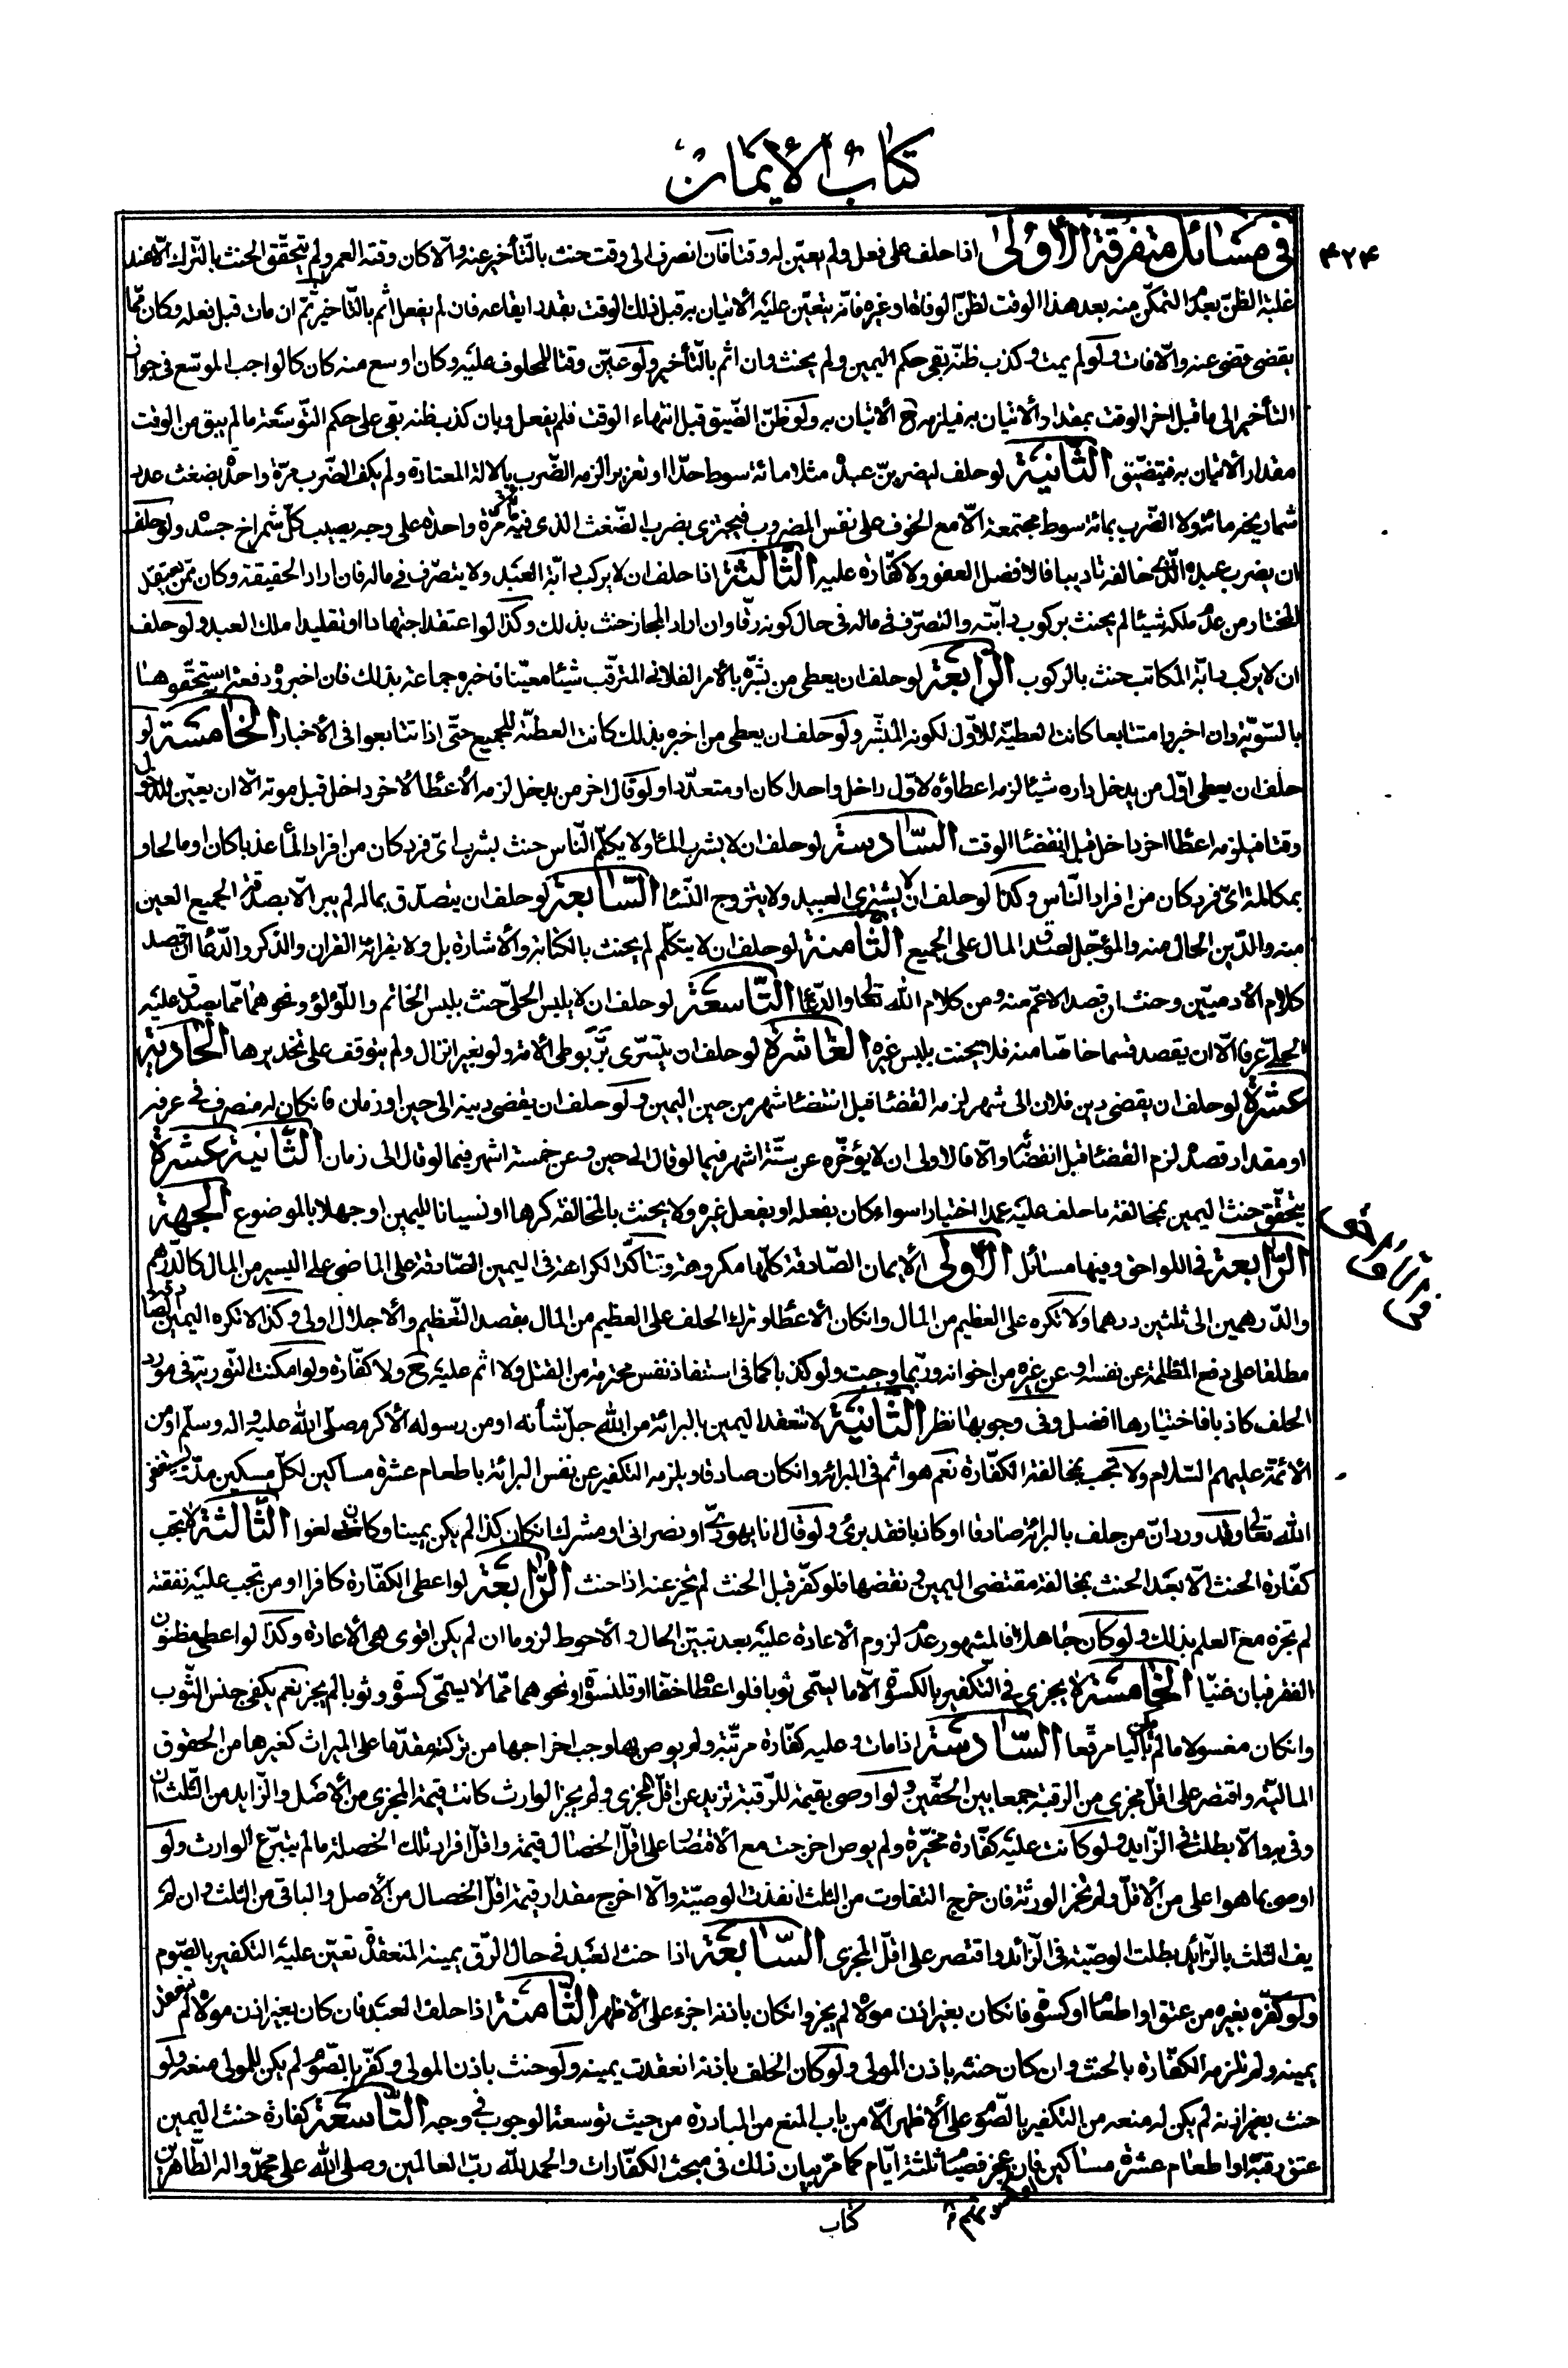 كتاب الأيمان
٤٢٤
في مسائل متفرقة الأولى اذا حلف على فعل ولم يعيّن له وقتا فان انصرف الى وقت حنث بالتّأخير عنه والّا كان وقته العمر ولم يتحقّق الحنث بالتّرك الّا عند
غلبة الظنّ بعدم التمكّن منه بعد هذا الوقت لظنّ الوفاة او غيره فانّه يتعيّن عليه الأتيان به قبل ذلك الوقت بقدر ايقاعه فان لم يفعل اثم بالتّاخير ثم ان مات قبل فعله وكان ممّا
يقضى قضى عنه والّا فات ولو لم يمت وكذب ظنّه بقى حكم اليمين ولم يحنث وان اثم بالتّأخير ولو عيّن وقتا للمحلوف عليه وكان اوسع منه كان كالواجب الموسّع في جواز
التأخير الى ما قبل اخر الوقت بمقدار الأتيان به فيلزمه ح الأتيان به ولو ظنّ الضّيق قبل انتهاء الوقت فلم يفعل وبان كذب ظنه بقى على حكم التّوسعة ما لم يبق من الوقت
مقدار الأتيان به فيتضيّق الثّانية لو حلف ليضربنّ عبده مثلا مائة سوط حدّا او تعزيرا لزمه الضّرب بالالة المعتادة ولم يكف الضّرب مرّة واحدة بضغث عدد
شماريخه مائة ولا الضّرب بمائة سوط مجتمعة الّا مع الخوف على نفس المضروب فيجتزى بضرب الضّغث الذى فيه مائة مرّة واحدة على وجه يصيب كلّ شمراخ جسده ولو حلف
ان يضرب عبده الّذى خالفه تاديبا فالافضل العفو ولا كفّارة عليه الثّالثة اذا حلف ان لا يركب دابّة العبد ولا يتصرّف في ماله فان اراد الحقيقة وكان ممّن يعتقد
المختار من عدم ملكه شيئا لم يحنث بركوب دابّته والتصرّف في ماله في حال كونه رقّا وان اراد المجاز حنث بذلك وكذا لو اعتقد اجتهادا او تقليدا ملك العبد ولو حلف
ان لا يركب دابّة المكاتب حنث بالركوب الرّابعة لو حلف ان يعطى من بشّره بالأمر الفلانى المترقّب شيئا معيّنا فاخبره جماعة بذلك فان اخبروه دفعة استحقّوها
بالسّويّة وان اخبروا متتابعا كانت العطيّة للأوّل لكونه المبشّر ولو حلف ان يعطى من اخبره بذلك كانت العطيّة للجميع حتّى اذا تتابعوا في الأخبار الخامسة لو
حلف ان يعطى اوّل من يدخل داره شيئا لزمه اعطاؤه لاوّل داخل واحدا كان او متعدّدا ولو قال اخر من يدخل لزمه الأعطا لاخر داخل قبل موته الّا ان يعيّن للدخول
وقتا فيلزمه اعطا اخر داخل قبل انقضا الوقت السّادسة لو حلف ان لا يشرب الماء او لا يكلّم النّاس حنث بشرب اىّ فرد كان من افراد الماء عذبا كان او مالحا و
بمكالمة اىّ فرد كان من افراد النّاس وكذا لو حلف ان لا يشترى العبيد ولا يتزوج النّسا السّابعة لو حلف ان يتصدّق بماله لم يبر الّا بصدقة الجميع العين
منه والدّين الحال منه والمؤجّل لصدق المال على الجميع الثّامنة لو حلف ان لا يتكلّم لم يحنث بالكتابة والأشارة بل ولا بقرائة القران والذكر والدّعا ان قصد
كلام الأدميّين وحنث ان قصد الاعمّ منه ومن كلام الله تعالى والدّعا التّاسعة لو حلف ان لا يلبس الحلىّ حنث بلبس الخاتم واللّؤلؤ ونحوهما ممّا يصدق عليه
الحلىّ عرفا الّا ان يقصد قسما خاصّا منه فلا يحنث بلبس غيره العاشرة لو حلف ان يتسرّى برّ بوطى الأمة ولو بغير انزال ولم يتوقف على تخديرها الحادية
عشرة لو حلف ان يقضى دين فلان الى شهر لزمه القضا قبل انقضا شهر من حين اليمين ولو حلف ان يقضى دينه الى حين او زمان فانكان له منصرف في عرفه
او مقدار قصده لزم القضا قبل انقضائه والّا فالاولى ان لا يؤخّره عن ستّة اشهر فيما لو قال الى حين وعن خمسة اشهر فيما لو قال الى زمان الثّانية عشرة
يتحقّق حنث اليمين بمخالفة ما حلف عليه عمدا اختيارا سواء كان بفعله او بفعل غيره ولا يحنث بالمخالفة كرها او نسيانا لليمين او جهلا بالموضوع الجهة
الرّابعة في اللواحق وفيها مسائل الأولى الأيمان الصّادقة كلّها مكروهة وتتأكّد الكراهة في اليمين الصّادقة على الماضى على اليسير من المال كالدّرهم
والدّرهمين الى ثلثين درهما ولا تكره على العظيم من المال وانكان الأعطا وترك الحلف على العظيم من المال بقصد التّعظيم والأجلال اولى وكذا لا تكره اليمين الصّادقة
مطلقا على دفع المظلمة عن نفسه او عن غيره من اخوانه وربّما وجبت ولو كذبا كما في استنقاذ نفس محترمة من القتل ولا اثم عليه ح ولا كفّارة ولو امكنت التّورية في مورد
الحلف كاذبا فاختيارها افضل وفى وجوبها نظر الثّانية لا تنعقد اليمين بالبرائة من الله جلّ شأنه او من رسوله الأكرم صلّى الله عليه واله وسلّم او من
الائمّة عليهم السّلام ولا تجب بمخالفته الكفّارة نعم هو اثم في البرائة وانكان صادقا ويلزمه التكفير عن نفس البرائة باطعام عشرة مساكين لكلّ مسكين مدّ ويستغفر
الله تعالى وقد ورد انّ من حلف بالبرائة صادقا او كاذبا فقد برئ ولو قال انا يهودىّ او نصرانى او مشرك انكان كذا لم يكن يمينا وكان لغوا الثّالثة لا تجب
كفّارة الحنث الّا بعد الحنث بمخالفة مقتضى اليمين ونقضها فلو كفّر قبل الحنث لم يجز عنه اذا حنث الرّابعة لو اعطى الكفّارة كافرا او من تجب عليه نفقته
لم تجزه مع العلم بذلك ولو كان جاهلا فالمشهور عدم لزوم الأعادة عليه بعد تبيّن الحال والأحوط لزوما ان لم يكن اقوى هى الأعادة وكذا لو اعطى مظنون
الفقر فبان غنيّا الخامسة لا يجزى في التّكفير بالكسوة الّا ما ليسمّى ثوبا فلو اعطا خفّا او قلنسوة او نحوهما ممّا لا يسمّى كسوة وثوبا لم يجز نعم يكفى جنس الثّوب
وانكان مغسولا ما لم يكن باليا مرقّعا السّادسة اذا مات وعليه كفّارة مرتّبة ولم يوص بها وجب اخراجها من تركته مقدّما على الميراث كغيرها من الحقوق
الماليّة واقتصر على اقلّ مجزى من الرقبة جمعا بين الحقّين ولو اوصى بقيمة للرّقبة تزيد عن اقلّ المجزى ولم يجز الوارث كانت قيمة المجزى من الأصل والزّايد من الثّلث ان
وفى به والّا بطلت في الزّايد ولو كانت عليه كفّارة مخيّرة ولم يوص اخرجت مع الأقتصار على اقلّ الخصال قيمة واقلّ افراد تلك الخصلة ما لم يتبرّع الوارث ولو
اوصى بما هو اعلى من الأقلّ ولم تجز الورثة فان خرج التفاوت من الثلث انفذت الوصيّة والّا اخرج مقدار قيمة اقلّ الخصال من الأصل والباقى من الثلث وان لم
يف الثلث بالزّايد بطلت الوصيّة في الزّائد واقتصر على اقلّ المجزى السّابعة اذا حنث العبد في حال الرّق يمينه المنعقدة تعيّن عليه التكفير بالصّوم
ولو كفّره بغيره من عتق او اطعام او كسوة فانكان بغير اذن مولاه لم يجز وانكان باذنه اجزء على الأظهر الثّامنة اذا حلف العبد فان كان بغير اذن مولاه لم تنعقد
يمينه ولم تلزمه الكفّارة بالحنث وان كان حنثه باذن المولى ولو كان الحلف باذنه انعقدت يمينه ولو حنث باذن المولى وكفّر بالصّوم لم يكن للمولى منعه ولو
حنث بغير اذنه لم يكن له منعه من التكفير بالصّوم على الأظهر الّا من باب المنع من المبادرة من حيث توسعة الوجوب في وجه التّاسعة كفارة حنث اليمين
عتق رقبة او اطعام عشرة مساكين او كسوتهم فان عجز فصيام ثلثة ايّام كما مرّ بيان ذلك في مبحث الكفّارات والحمد لله ربّ العالمين وصلى الله على محمّد واله الطّاهرين
كتاب